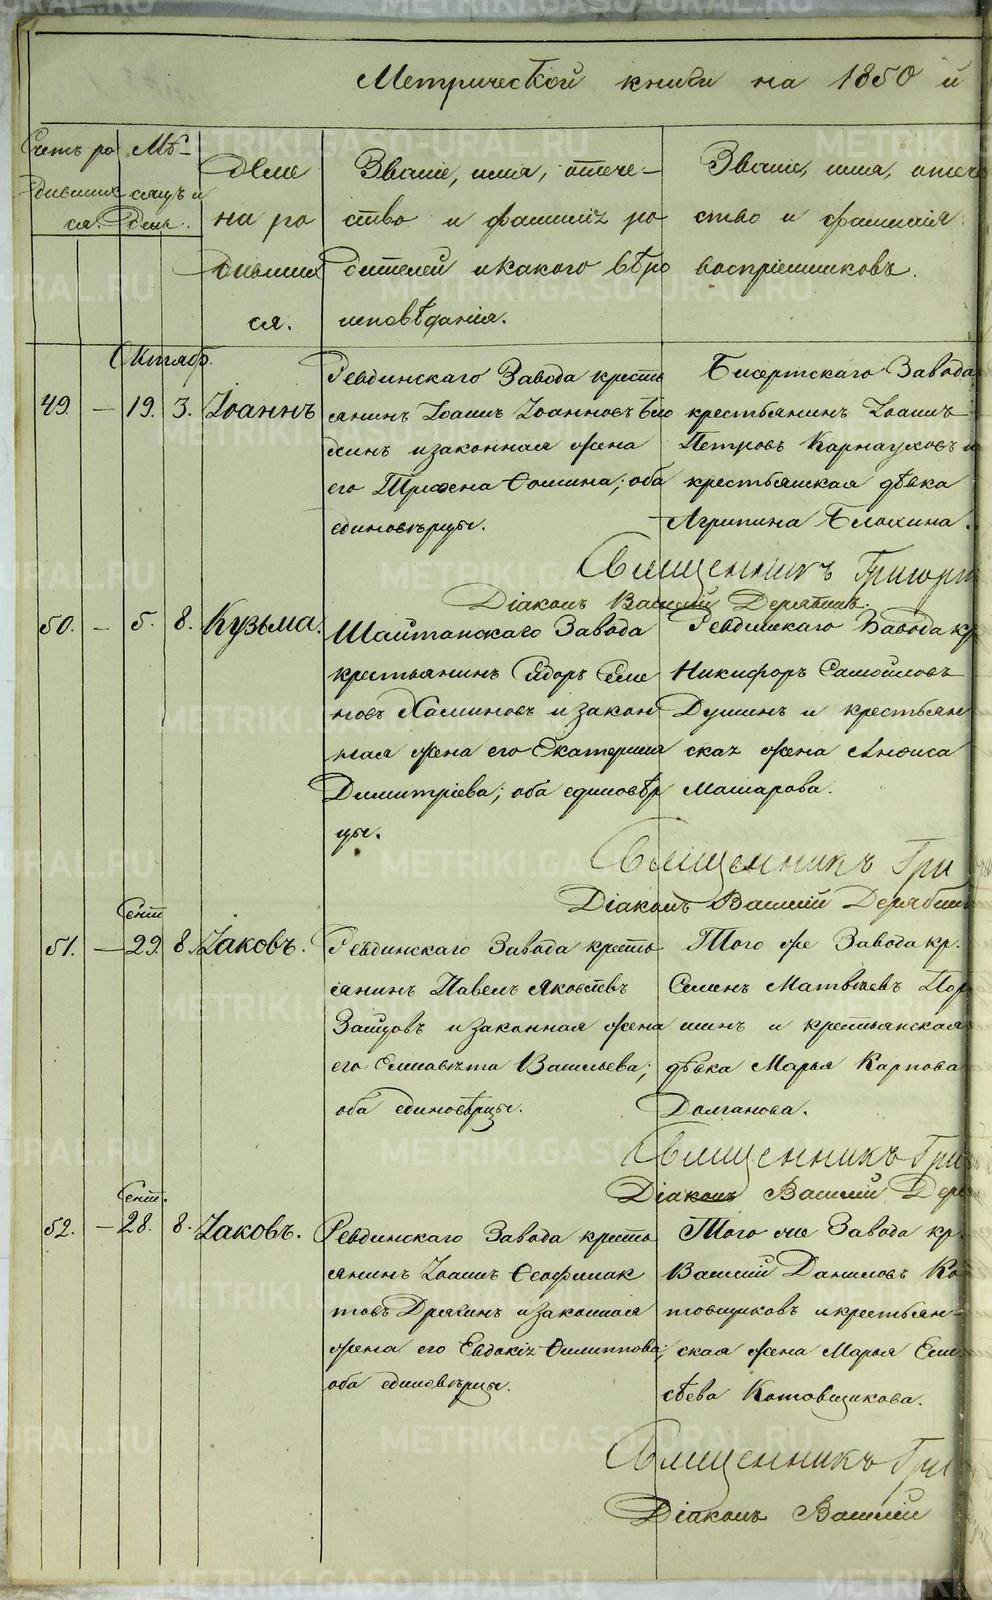 Метрической книги на 1850 й
Счетъ ро
дивших
ся.
Мѣ-
сяцъ и
день.
Имена родившихся.
Званіе, имя, отече-
ство и фамилія ро
дителей и какого вѣро
исповѣданія.
Званіе, имя, отече
ство и фамилія
воспріемниковъ.
Октябр.
49. — 19. 3. Іоаннъ
Ревдинскаго Завода кресть
янинъ Іоаннъ Іоанновъ Бло
хинъ и законная жена
его Ѳомина; оба
единовѣрцы.
Бисертскаго Завода
крестьянинъ Іоаннъ
Петровъ Карнауховъ и
крестьянская дѣвка
Агрипина Блохина.
Священникъ Григорій
Діаконъ Василій Дерябинъ.
50. — 5. 8. Кузьма.
Шайтанскаго Завода
крестьянинъ Сидоръ Семе
новъ Халиновъ и закон
ная жена его Екатерина
Димитріева; оба единовѣр
цы.
Ревдинскаго Завода кр
Никифоръ Самойловъ
и крестьян
ская жена Анѳиса
Машарова.
Священникъ Гри
Діаконъ Василій Дерябинъ
Сент
51. — 29. 8. Іаковъ.
Ревдинскаго Завода кресть
янинъ Павелъ Яковлевъ
Зайцовъ и законная жена
его Елисавета Васильева;
оба единовѣрцы.
Того же Завода кр.
Семенъ Матвѣевъ Пор
шинъ и крестьянская
дѣвка Марья Карпова
Долганова.
Священникъ Гри
Діаконъ Василій Дер
Сент.
52. — 28. 8. Іаковъ.
Ревдинскаго Завода кресть
янинъ Іоаннъ Ѳеофилак
товъ Дрягинъ и законная
жена его Евдокія Филиппова;
оба единовѣрцы.
Того же Завода кр.
Василій Даниловъ Ко
товщиковъ и крестьян-
ская жена Марья Ели
сѣева Котовщикова.
Священникъ Гри
Діаконъ Василій
METRIKI.GASO-URAL.RU